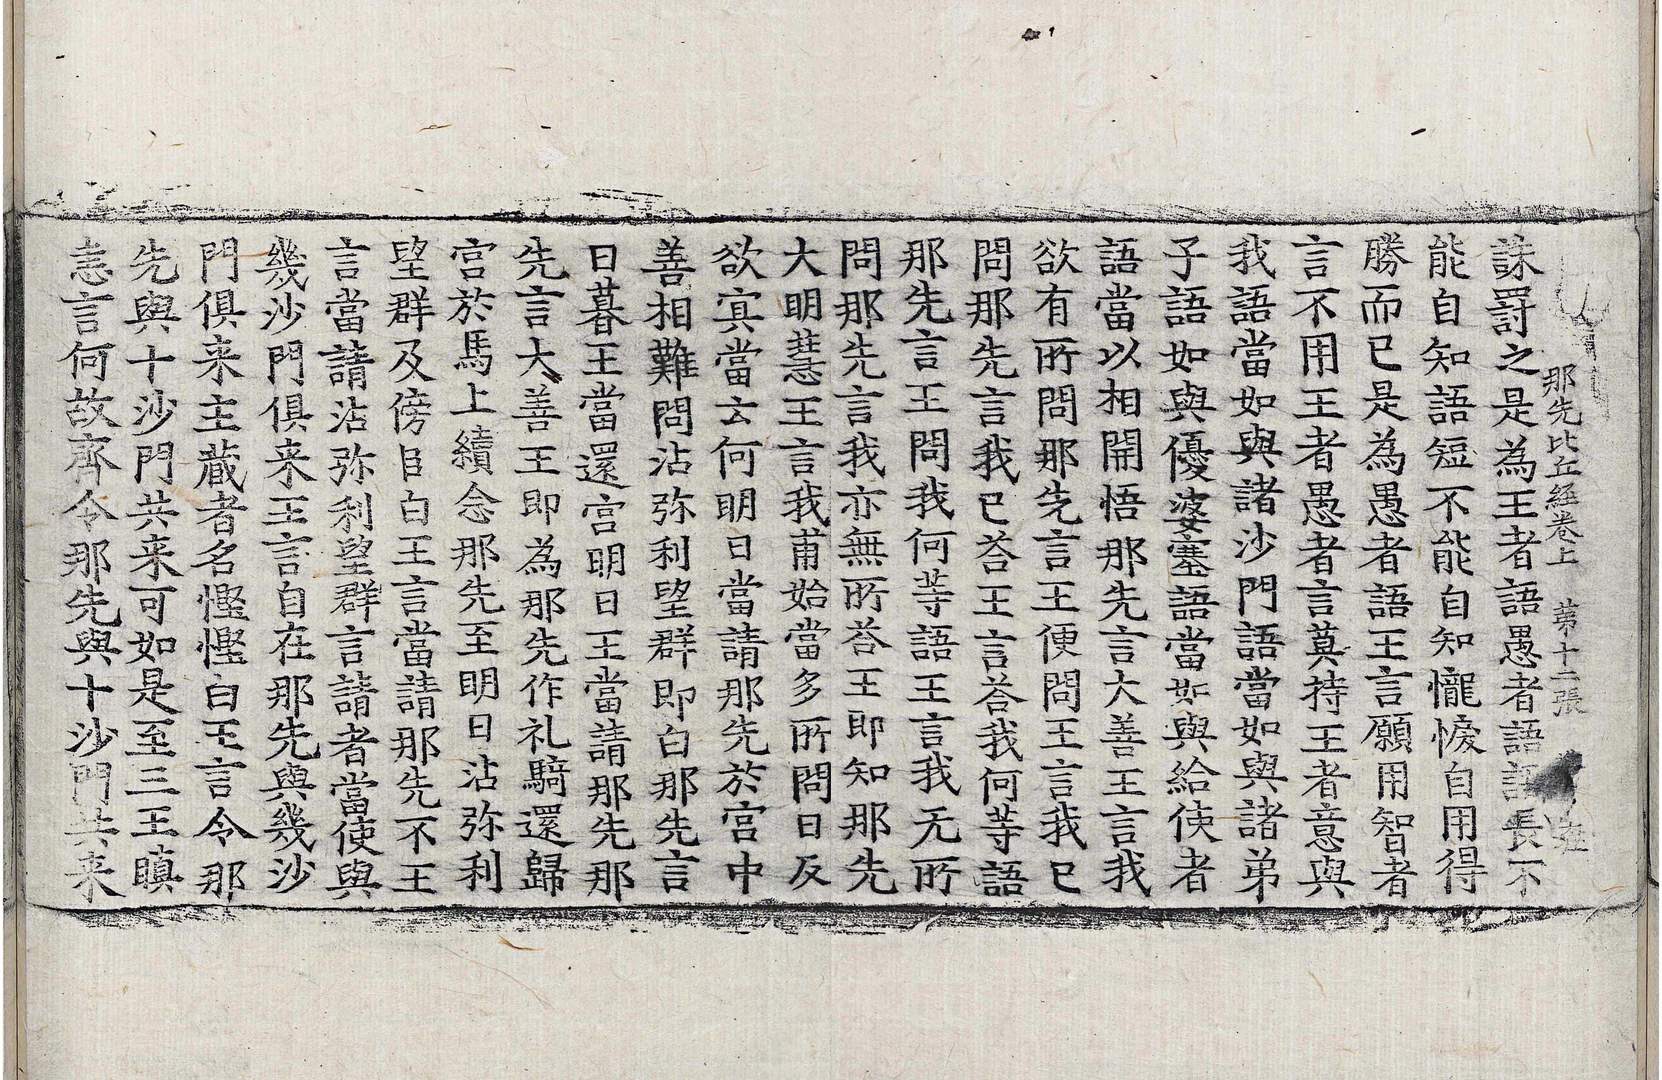 那先比丘經卷上　第十二張
誅罰之是為王者語愚者語語長不
能自知語短不能自知㦬悷自用得
勝而已是為愚者語王言願用智者
言不用王者愚者言莫持王者意與
我語當如與諸沙門語當如與諸弟
子語如與優婆塞語當如與給使者
語當以相開悟那先言大善王言我
欲有所問那先言王便問王言我已
問那先言我已荅王言荅我何等語
那先言王問我何等語王言我无所
問那先言我亦無所荅王即知那先
大明慧王言我甫始當多所問日反
欲冥當云何明日當請那先於宮中
善相難問沾弥利望群即白那先言
日暮王當還宮明日王當請那先那
先言大善王即為那先作礼騎還歸
宮於馬上續念那先至明日沾弥利
望群及傍臣白王言當請那先不王
言當請沾弥利望群言請者當使與
幾沙門俱来王言自在那先與幾沙
門俱来主蔵者名慳慳白王言令那
先與十沙門共来可如是至三王瞋
恚言何故齊令那先與十沙門共来